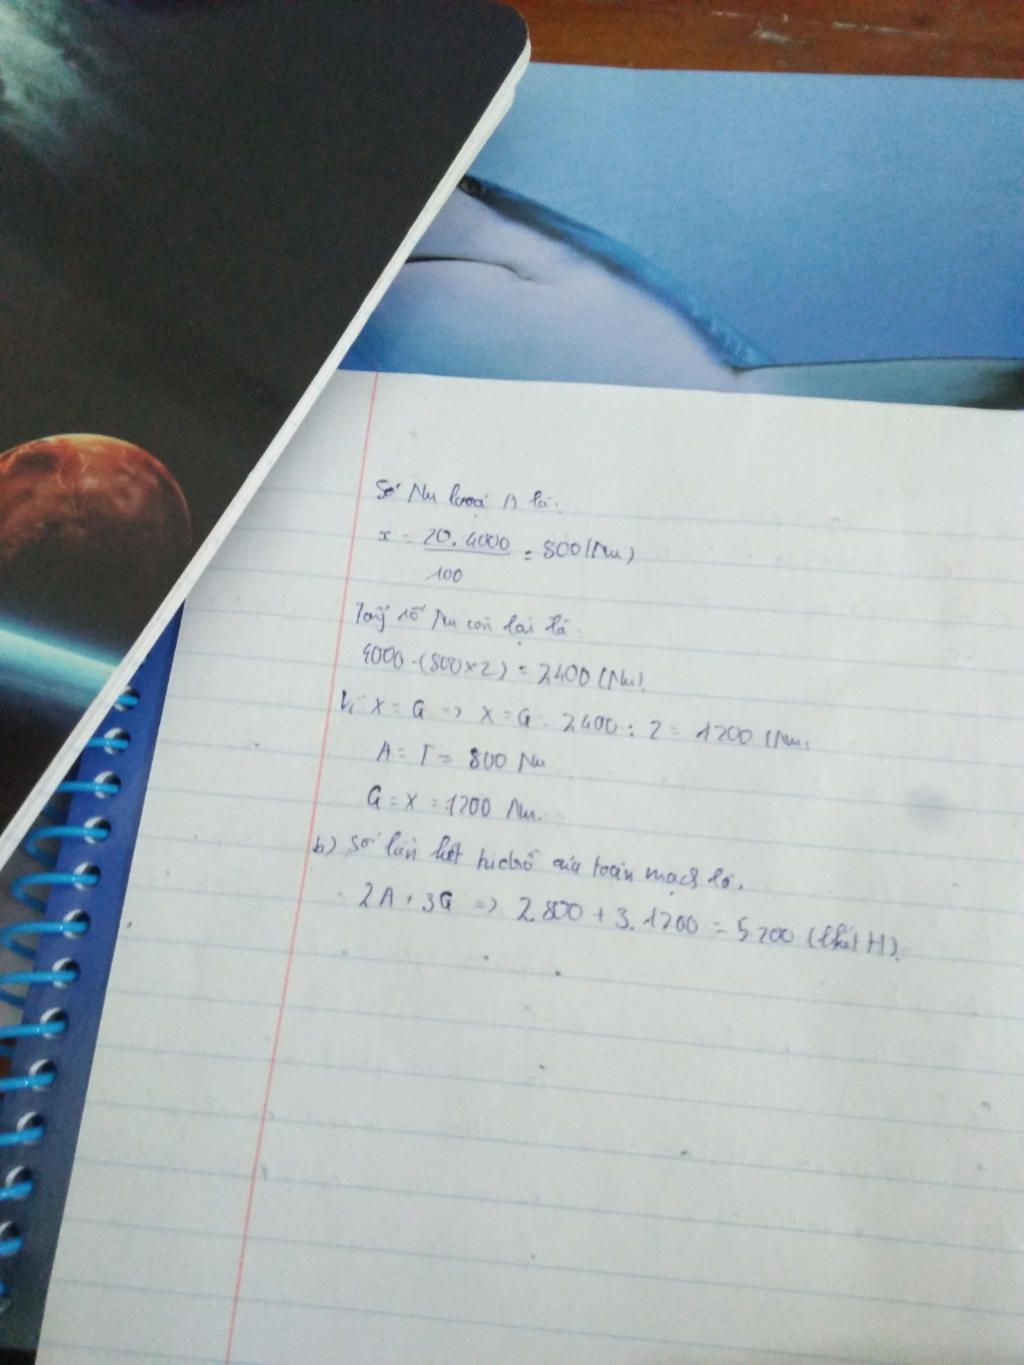 Số Nu loại A là:
x = 20.4000 / 100 = 800 (Nu)
Tổng số Nu còn lại là:
4000 - (800 x 2) = 2400 (Nu)
Vì X = G => X = G = 2400 : 2 = 1200 (Nu)
A = T = 800 Nu
G = X = 1200 Nu.
b) Số liên kết hiđrô của toàn mạch là.
2A + 3G => 2.800 + 3.1200 = 5200 (lkết H).